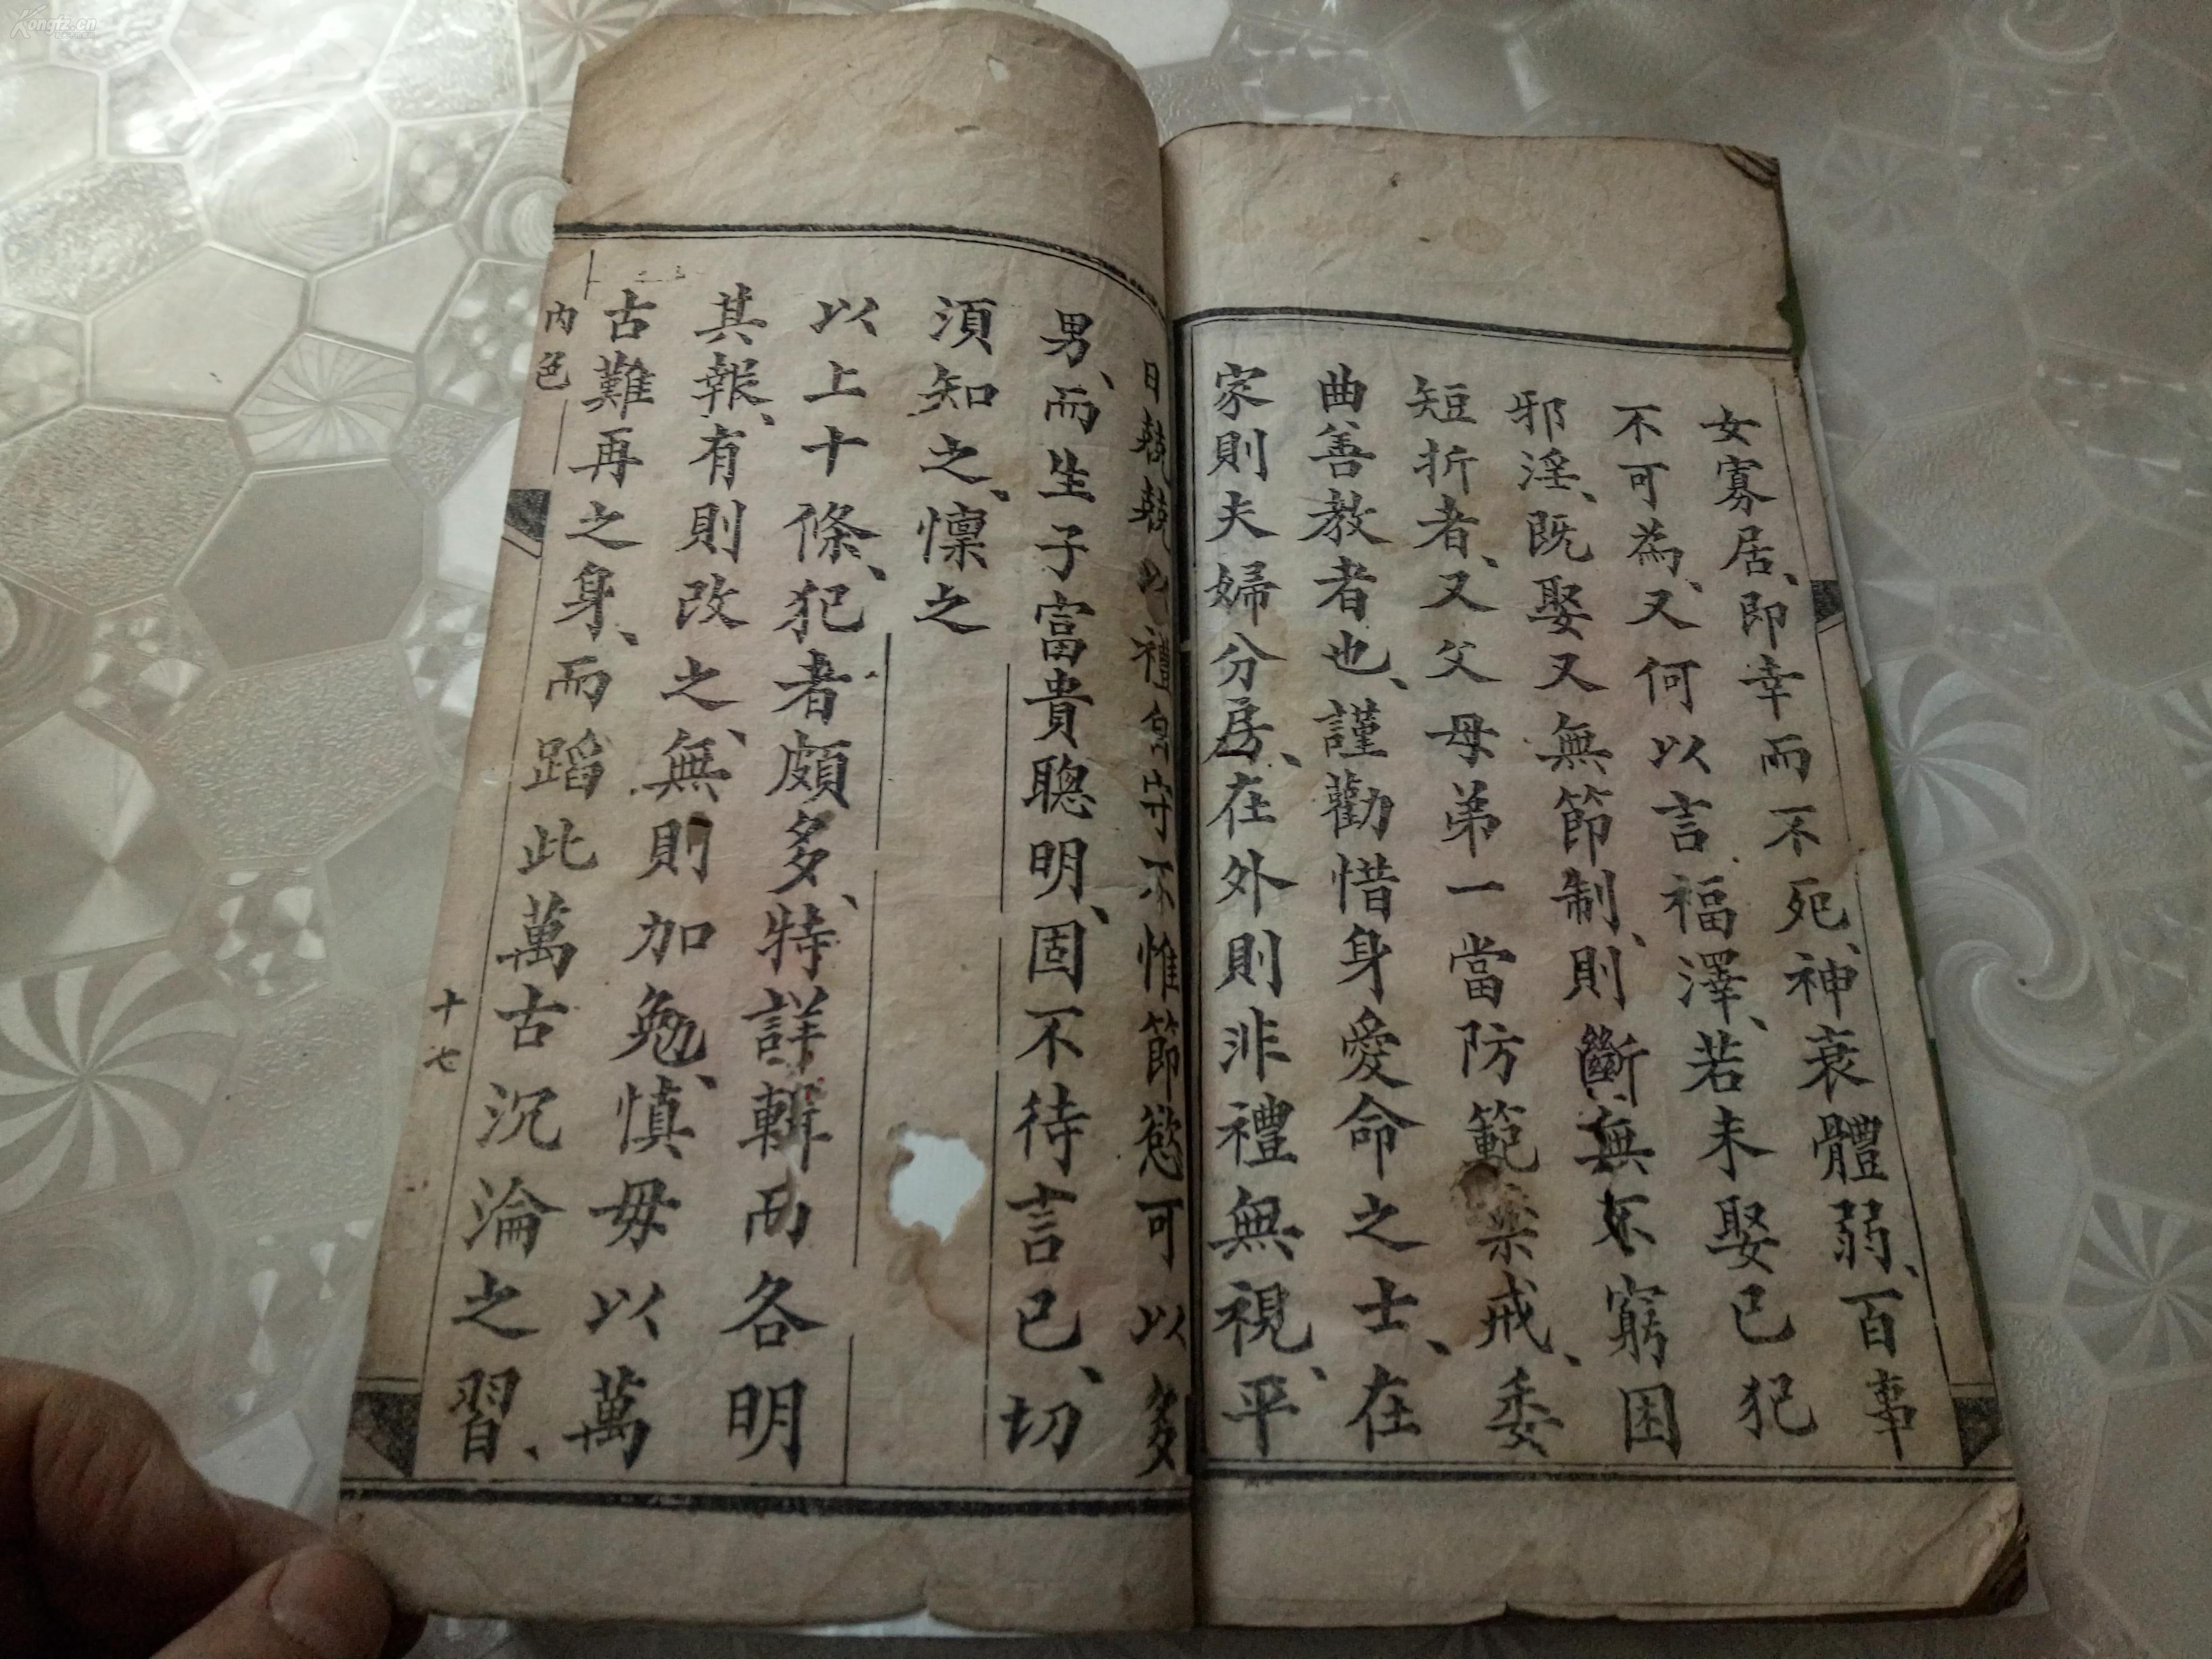 女寡居、即幸而不死、神衰體弱、百事
不可為、又何以言福澤、若未娶已犯
邪淫、既娶又無節制、則斷無不窮困
短折者、又父母弟一當防範禁戒、委
曲善教者也、謹勸惜身愛命之士、在
家則夫婦分房、在外則非禮無視、平
日兢兢以禮自守不惟節慾可以多
男、而生子富貴聰明、固不待言已、切
須知之、懍之
以上十條、犯者頗多、特詳輯而各明
其報、有則改之、無則加勉、慎毋以萬
古難再之身、而蹈此萬古沉淪之習、
內色
十七
Kongfz.cn